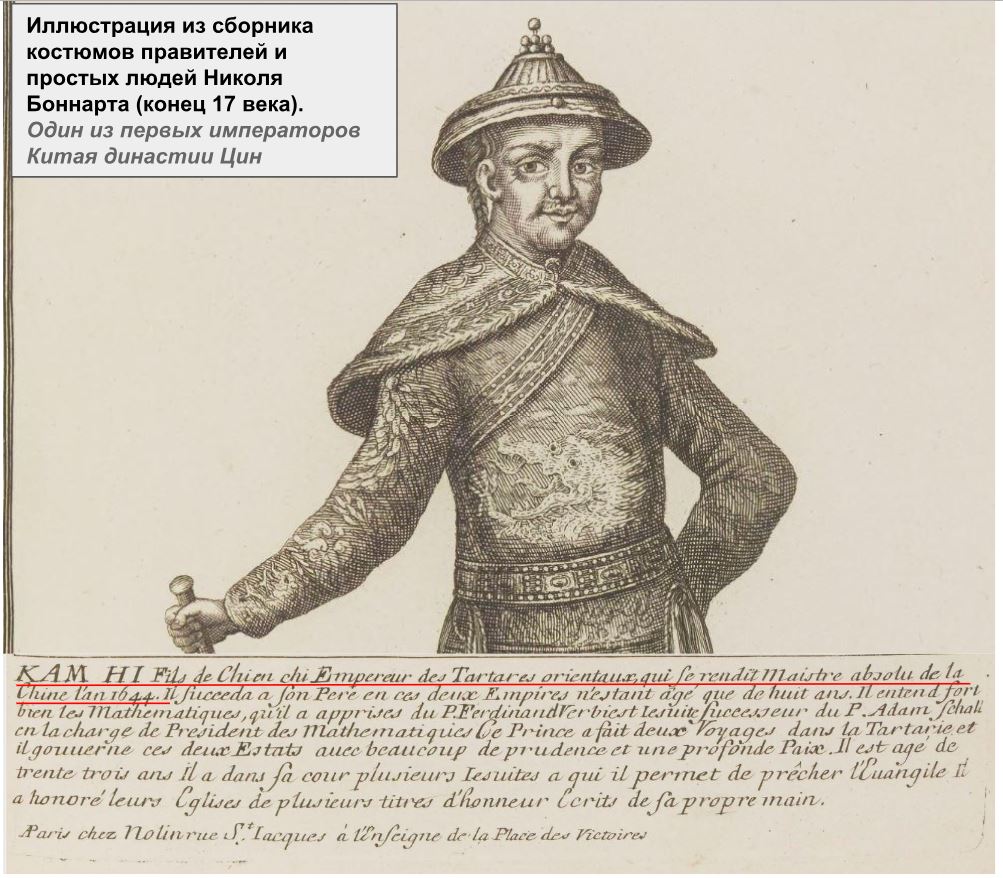 Иллюстрация из сборника
костюмов правителей и
простых людей Николя
Боннарта (конец 17 века).
Один из первых императоров
Китая династии Цин
KAM HI Fils de Chien chi Empereur des Tartares orientaux, qui se rendit Maistre absolu de la
Chine l'an 1644. Il succeda a son Pere en ces deux Empires n'estant agé que de huit ans. Il entend fort
bien les Mathematiques, qu'il a apprises du P. Ferdinand Verbiest Iesuite successeur du P. Adam Schall
en la charge de President des Mathematiques Ce Prince a fait deux Voyages dans la Tartarie et
il gouuerne ces deux Estats auec beaucoup de prudence et une profonde Paix. Il est agé de
trente trois ans Il a dans sa cour plusieurs Iesuites a qui il permet de prêcher l'Euangile Il
a honoré leurs Eglises de plusieurs titres d'honneur Ecrits de sa propre main.
A Paris chez Nolin rue S.t Iacques à l'Enseigne de la Place des Victoires